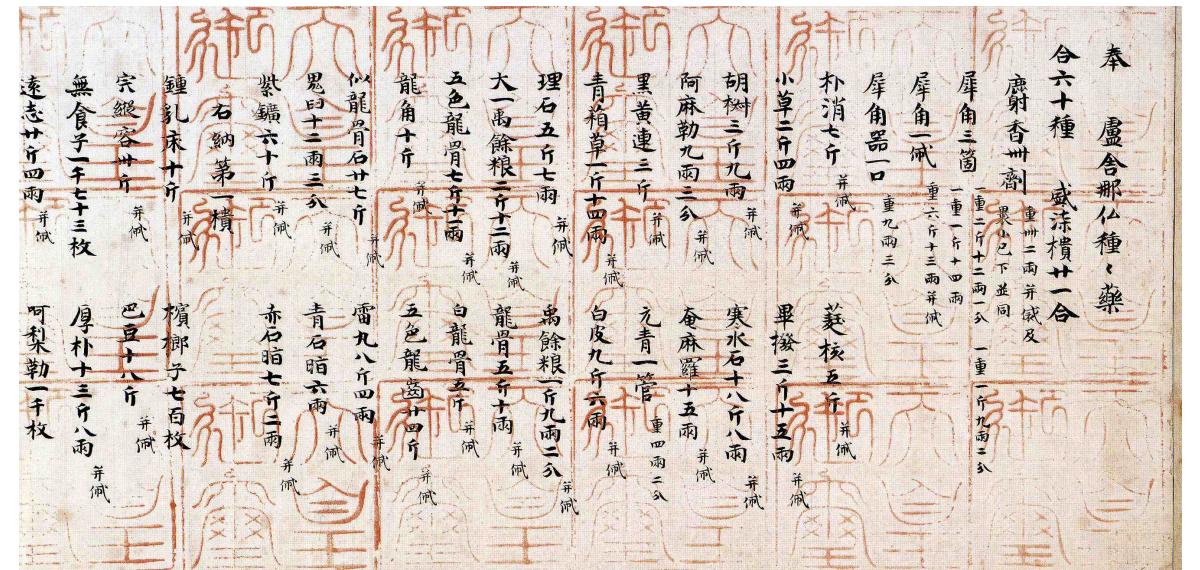 奉 盧舍那仏種〻藥
合六十種 盛漆櫃廿一合
麝香卌劑 重卌二兩并帒及裹小已下並同
犀角三箇 一重二斤十二兩一分 一重一斤九兩二分 一重一斤十四兩
犀角一帒 重六斤十三兩并帒
犀角器一口 重九兩三分
朴消七斤并帒 蕤核五斤并帒
小草二斤四兩并帒 畢撥三斤十五兩并帒
胡椒三斤九兩 寒水石十八斤八兩并帒
阿麻勒九兩三分并帒 奄麻羅十五兩并帒
黑黄連三斤并帒 元青一管 重四兩二分
青葙草一斤十四兩并帒 白皮九斤六兩并帒
理石五斤七兩并帒 禹餘粮一斤九兩二分并帒
大一禹餘粮二斤十二兩并帒 龍骨五斤十兩并帒
五色龍骨七斤十一兩并帒 白龍骨五斤并帒
龍角十斤并帒 五色龍齒廿四斤并帒
似龍骨石廿七斤并帒 雷丸八斤四兩并帒
鬼臼十二兩三分并帒 青石脂六兩并帒
紫鑛六十斤并帒 赤石脂七斤二兩并帒
右納第一櫃
鍾乳床十斤并帒 檳榔子七百枚
宍縱容卅斤并帒 巴豆十八斤并帒
無食子一千七十三枚 厚朴十三斤八兩并帒
遠志廿斤四兩并帒 呵梨勒一千枚
天皇御璽